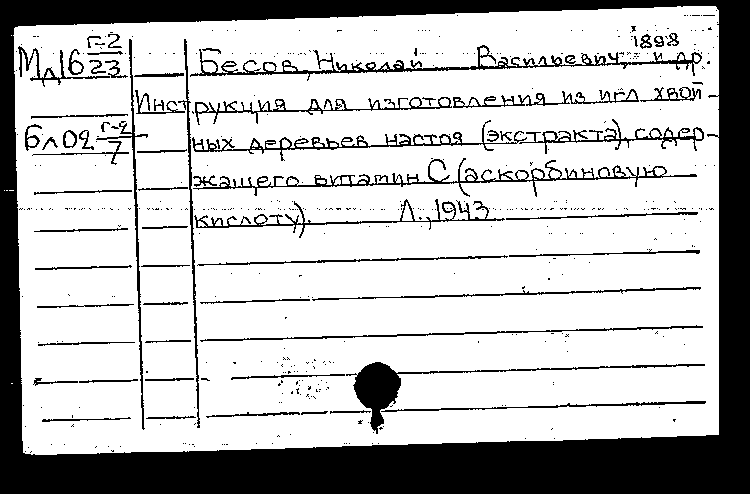 Мд16 г-2/23 Бесов, Николай Васильевич, 1898 и др.
Инструкция для изготовления из игл хвой-
Бл02 г-2/7 ных деревьев настоя (экстракта), содер-
жащего витамин С (аскорбиновую
кислоту). Л., 1943